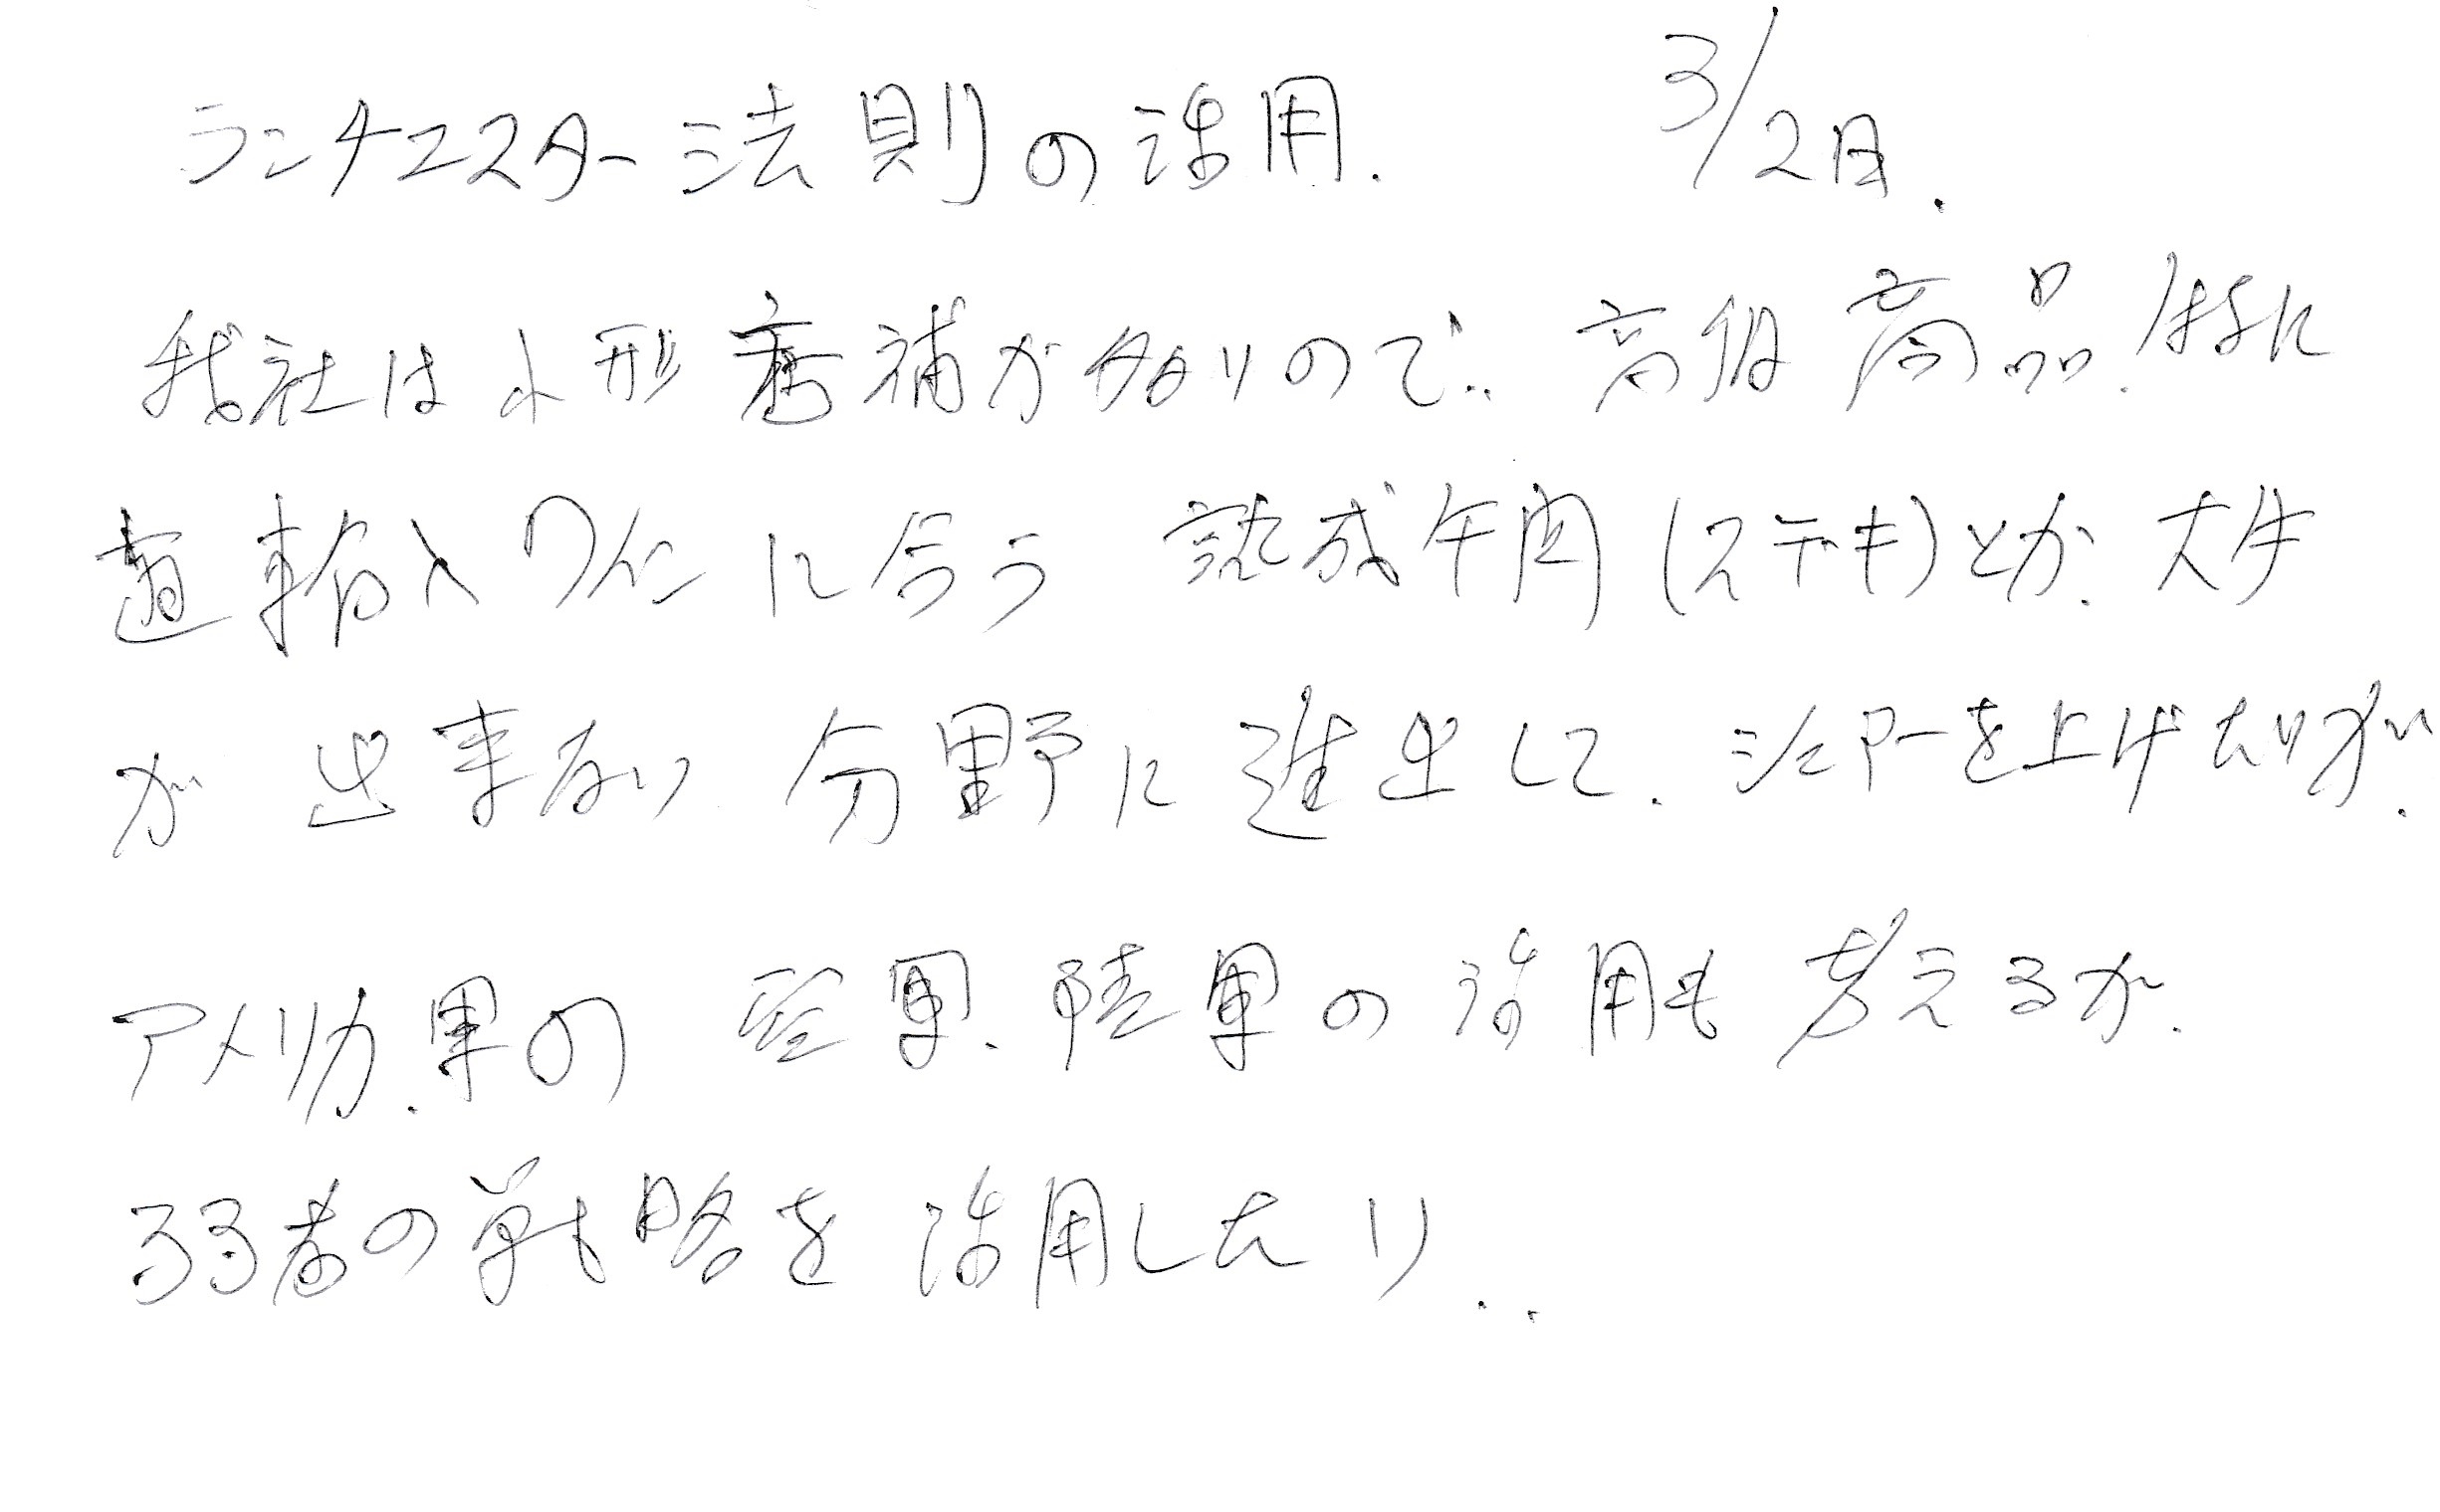 ランチェスター法則の活用. 3/2日.
我社は小形店舗が多いので.. 高級商品.特に
直輸入ワインに合う 熟成牛肉(ステキ)とか. 大手
が 出来ない 分野に進出して. シェアーを上げたいが.
アメリカ.軍の 空軍.陸軍の 活用も 考えるが.
弱者の戦略を 活用したい..